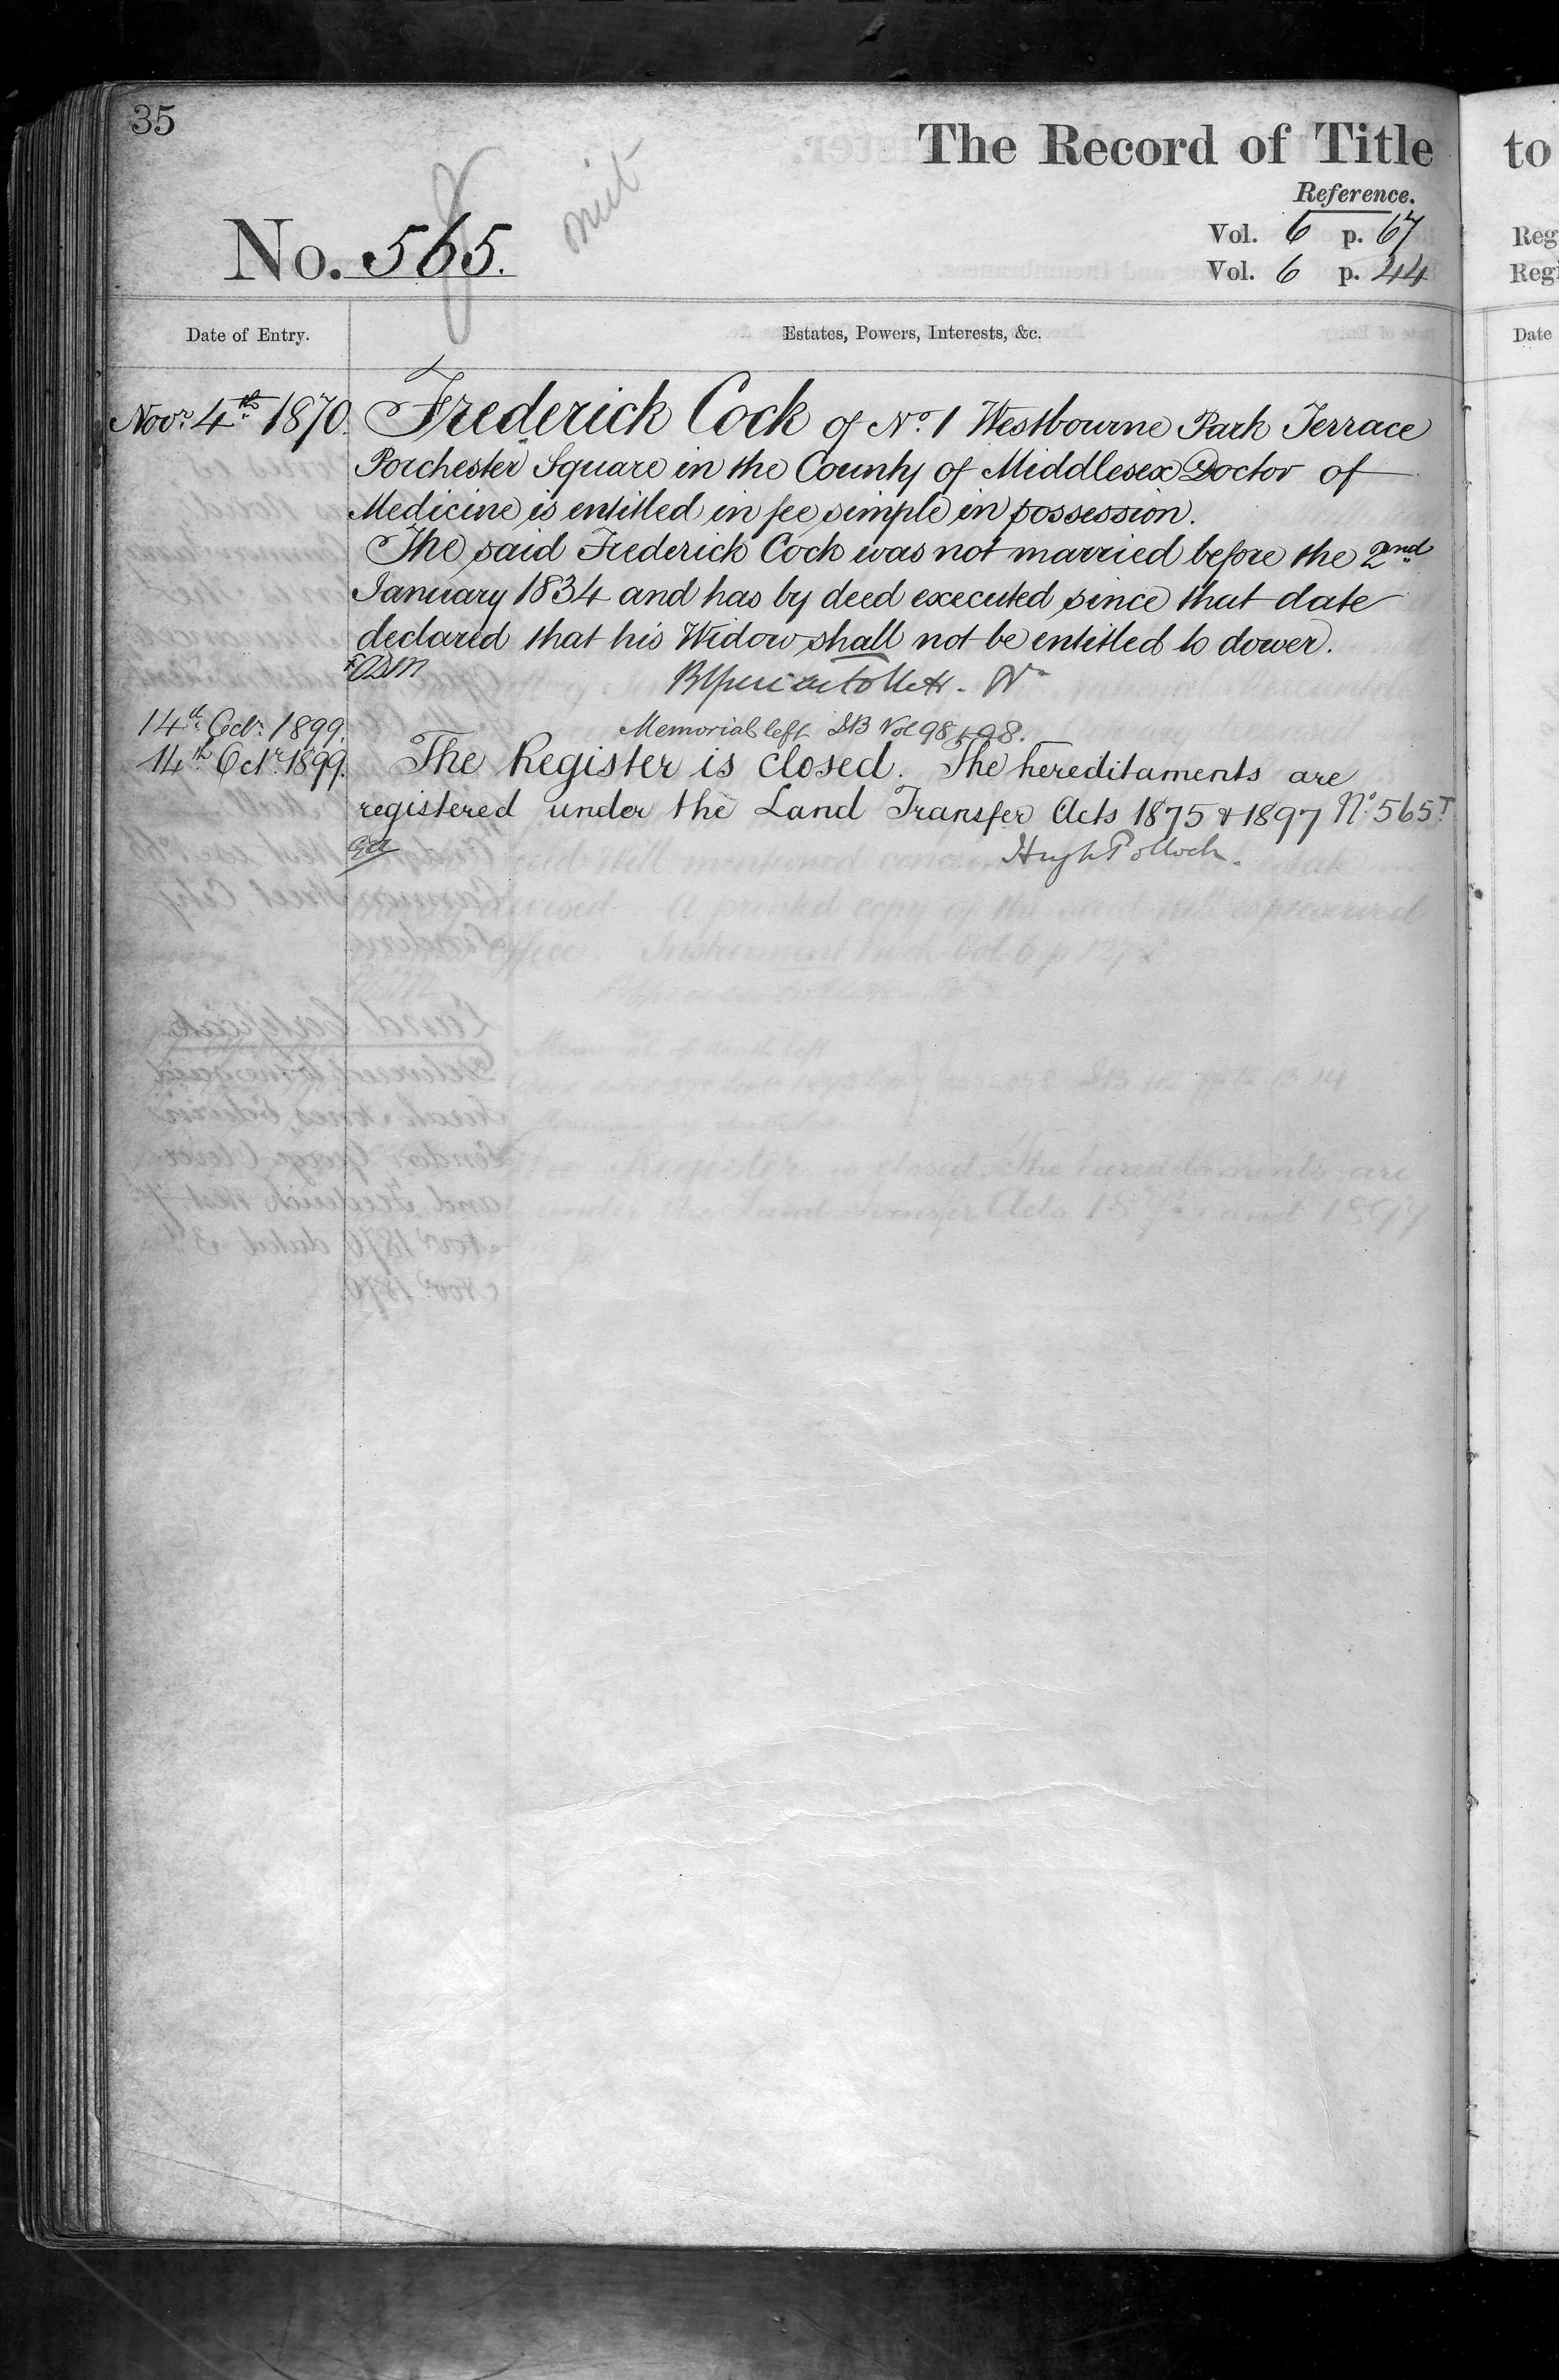 35
The Record of Title
to
Reference.
Vol. 6 p. 67
Vol. 6 p. 44
No. 565.
Reg
Regi
Date of Entry.
Estates, Powers, Interests, &c.
Date
Novr. 4th. 1870.
Frederick Cock of No. 1 Westbourne Park Terrace
Porchester Square in the County of Middlesex Doctor of
Medicine is entitled in fee simple in possession.
The said Frederick Cock was not married before the 2nd.
January 1834 and has by deed executed since that date
declared that his Widow shall not be entitled to dower.
14th. Octr. 1899.
Memorial left
14th. Octr. 1899.
The Register is closed. The hereditaments are
registered under the Land Transfer Acts 1875 & 1897 No. 565T
Hugh Pollock.